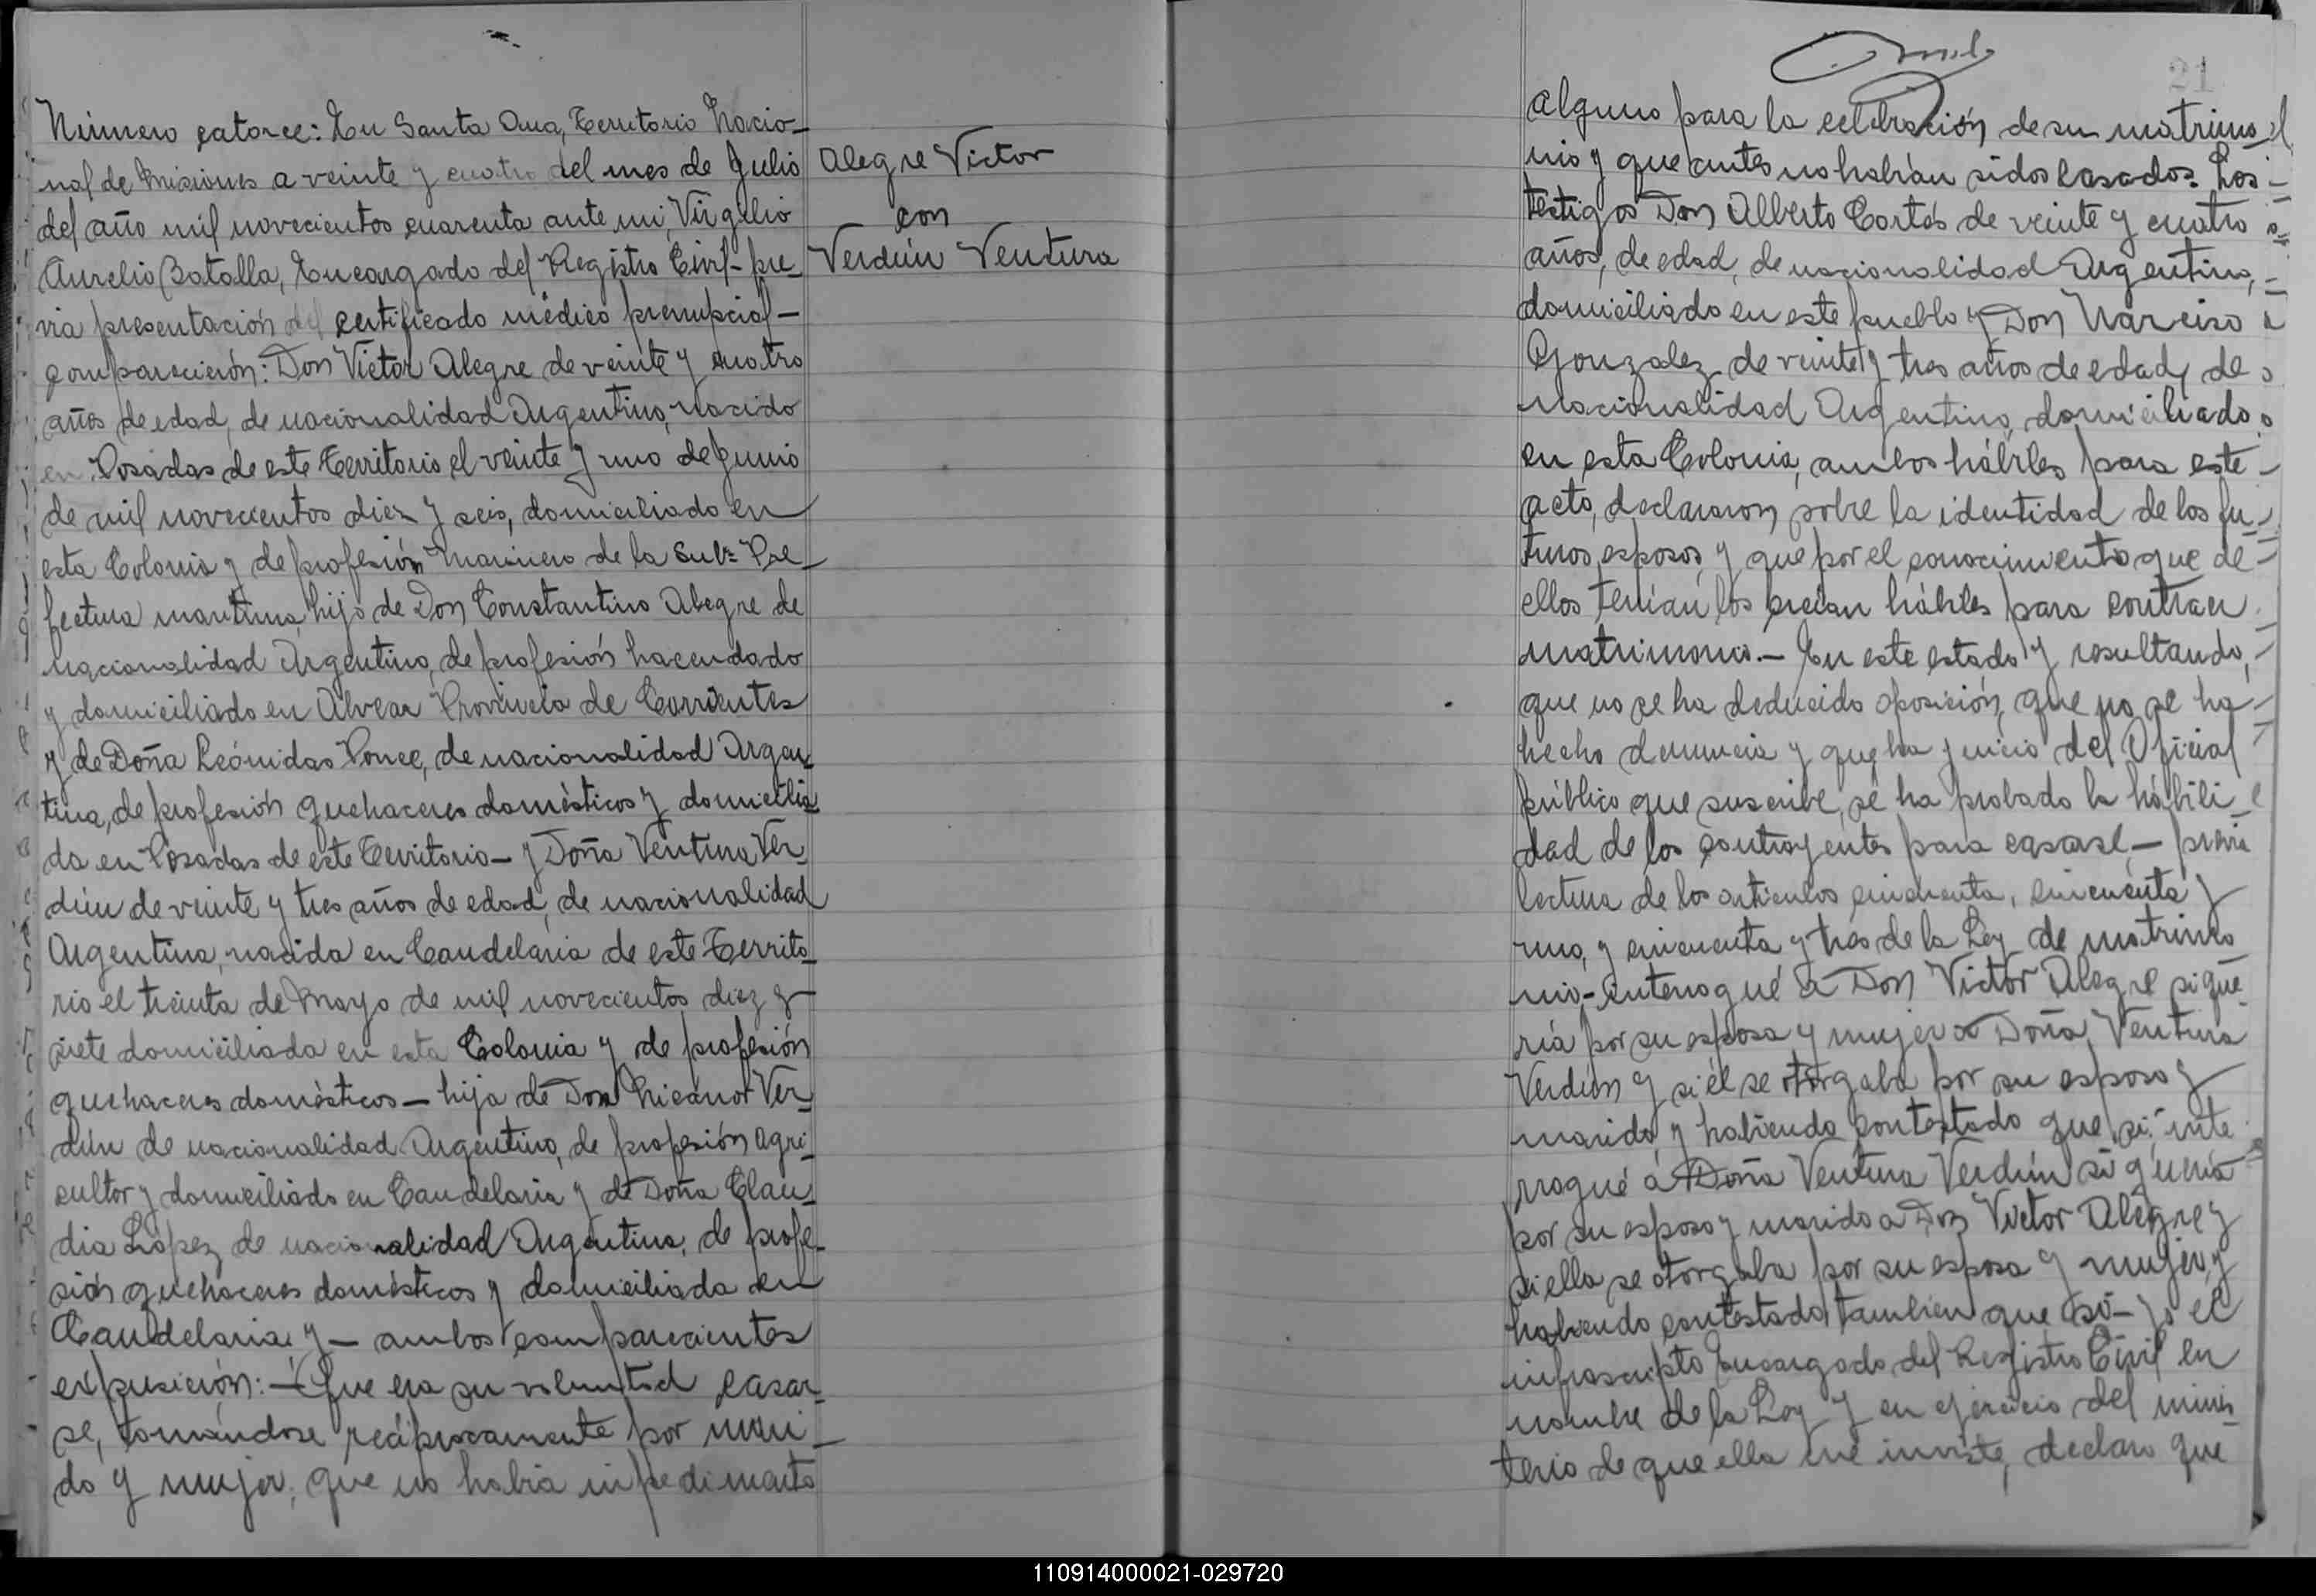 Número catorce: En Santa Ana, Territorio Nacio-
nal de Misiones a veinte y cuatro del mes de Julio
del año mil novecientos cuarenta ante mi, Virgilio
Aurelio Batalla, Encargado del Registro Civil- pre-
via presentación del certificado médico prenupcial-
comparecieròn: Don Victor Alegre de veinte y cuatro
años de edad, de nacionalidad Argentino, nacido
en Posadas de este Territorio el veinte y uno de Junio
de mil novecientos diez y seis, domiciliado en
esta Colonia y de profesión Marinero de la Sub= Pre-
fectura maritima, hijo de Don Constantino Alegre de
nacionalidad Argentino, de profesión hacendado
y domiciliado en Alvear Provincia de Corrientes
y de Doña Leónidas Ponce, de nacionalidad Argen-
tina, de profesión quehaceres domésticos y domicilia-
da en Posadas de este Territorio- y Doña Ventura Ver-
dún de veinte y tres años de edad, de nacionalidad
Argentina, nacida en Candelaria de este Territo-
rio el treinta de Mayo de mil novecientos diez y
siete domiciliada en esta Colonia y de profesión
quehaceres domésticos- hija de Don Nicanor Ver-
dún de nacionalidad Argentino, de profesión agri-
cultor y domiciliado en Candelaria y de Doña Clau-
dia López de nacionalidad Argentina, de profe-
sión quehaceres domésticos y domiciliada en
Candelaria y- ambos comparecientes
expusieròn:- Que era su voluntad casar-
se, tomándose recíprocamente por mari-
do y mujer, que no habia inpedimento
Alegre Victor
con
Verdún Ventura
21
alguno para la celebración de su matrimo-
nio y que antes no habían sidos casados. Los-
testigos Don Alberto Cortés de veinte y cuatro
años, de edad, de nacionalidad Argentino,
domiciliado en este pueblo y Don Narciso
Gonzalez de veinte y tres años de edad, de
nacionalidad Argentino, domiciliado
en esta Colonia, ambos hábiles para este-
acto, declararon sobre la identidad de los fu-
turos esposos y que por el conocimiento que de
ellos tenían los creían hábiles para contraer
matrimonio.- En este estado y resultando,
que no se ha deducido oposición, que no se ha
hecho denuncia y que ha juicio del Oficial
público que suscribe, se ha probado la hábili
dad de los contrayentes para casarse,- previa
lectura de los articulos cincuenta, cincuenta y
uno, y cincuenta y tres de la Ley de matrimo
nio- interrogué a Don Victor Alegre si que-
ría por su esposa y mujer a Doña Ventura
Verdún y si él se otorgaba por su esposo y
marido, y habiendo contestado que si, inte
rrogué a Doña Ventura Verdún si quería
por su esposo y marido a Don Victor Alegre y
si ella se otorgaba por su esposa y mujer, y
habiendo contestado, tambien que si- yo el
infrascripto Encargado del Registro Civil en
nombre de la Ley y en ejercicio del minis
terio de que ella me inviste, declaro que
110914000021-029720